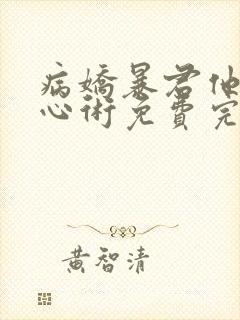 病嬌暴君他
心術免費完
黃智清